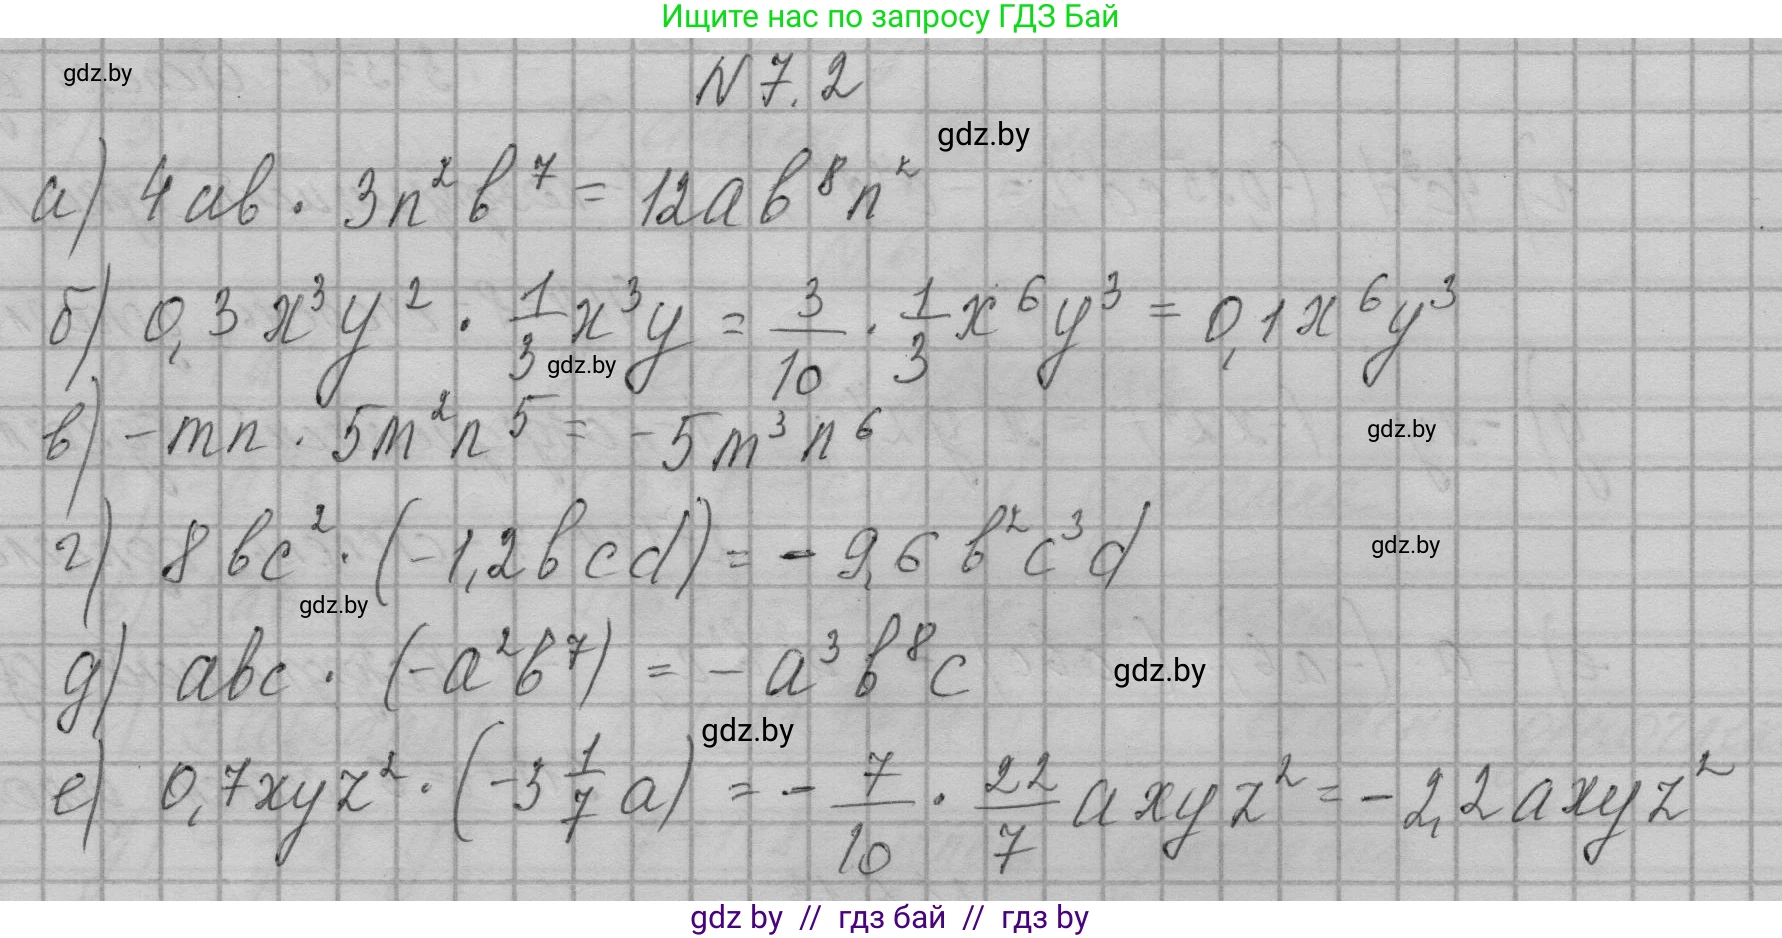 Ищите нас по запросу ГДЗ Бай
gdz.by
N 7.2
gdz.by
а) 4ab · 3n²b⁷ = 12ab⁸n²
б) 0,3x³y² · 1/3 x³y = 3/10 · 1/3 x⁶y³ = 0,1x⁶y³
gdz.by
в) -mn · 5m²n⁵ = -5m³n⁶
gdz.by
г) 8bc² · (-1,2bcd) = -9,6b²c³d
gdz.by
gdz.by
д) abc · (-a²b⁷) = -a³b⁸c
gdz.by
gdz.by
е) 0,7xyz² · (-3 1/7 a) = - 7/10 · 22/7 axyz² = -2,2axyz²
gdz by // гдз бай // гдз by